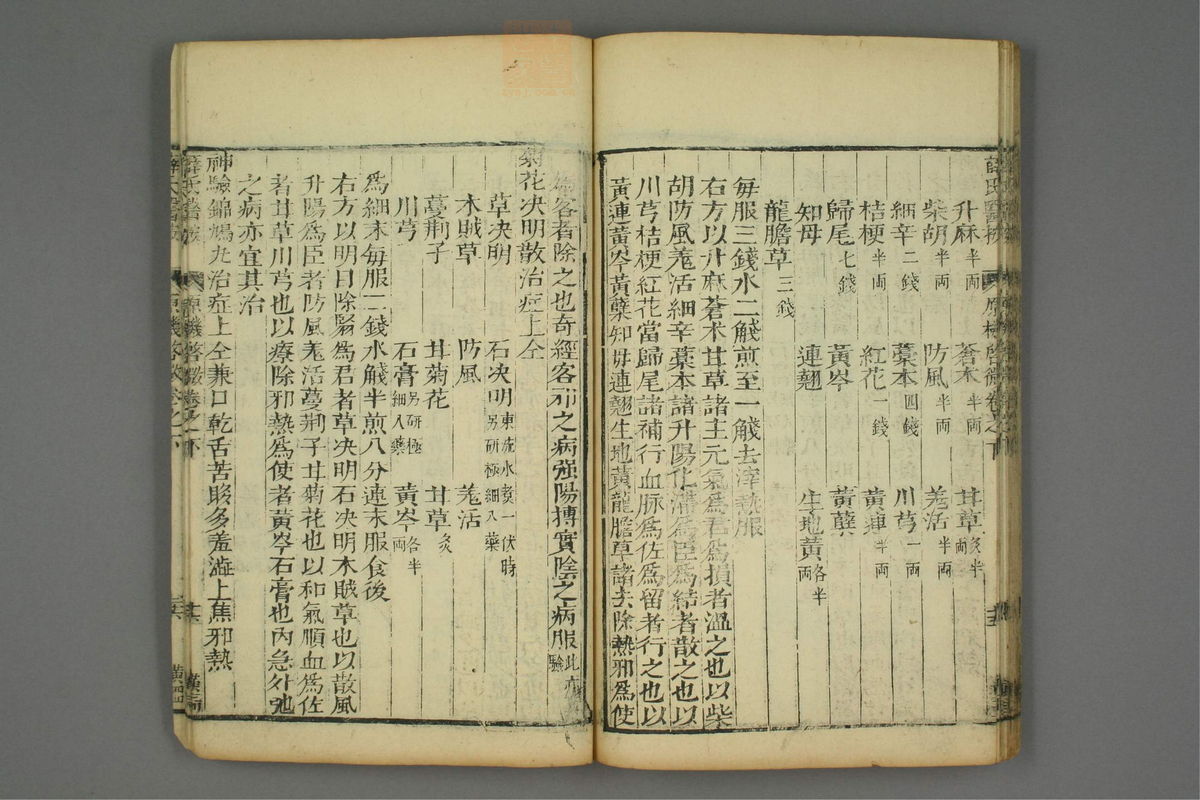 升麻半両 蒼朮半両 甘草炙半両
柴胡半両 防風半両 羗活半両
細辛二錢 藁本四錢 川芎一両
桔梗半両 紅花一錢
歸尾七錢 黃岑 黃蘗
知母 連翹 生地黃各半両
龍膽草三錢
每服三錢水二醆煎至一醆去滓熱服
右方以升麻蒼朮甘草諸主元氣爲君爲損者溫之也以柴
胡防風羗活細辛藁本諸升陽化滯爲臣爲結者散之也以
川芎桔梗紅花當歸尾諸補行血脉爲佐爲留者行之也以
黃連黃岑黃蘗知母連翹生地黃龍膽草諸去除熱邪爲使
爲客者除之也奇經客邪之病强陽搏實陰之病服此亦驗
菊花决明散治症上仝
草决明 石决明東流水煑一伏時另研極細入藥
木賊草 防風 羗活
蔓荆子 甘菊花 甘草炙
川芎 石膏另研極細入藥 黃岑各半両
爲細末每服二錢水醆半煎八分連末服食後
右方以明目除翳爲君者草决明石决明木賊草也以散風
升陽爲臣者防風羗活蔓荆子甘菊花也以和氣順血爲佐
者甘草川芎也以療除邪熱爲使者黃岑石膏也內急外弛
之病亦宜其治
神驗錦鳩丸治症上仝兼口乾舌苦眵多羞澁上焦邪熱